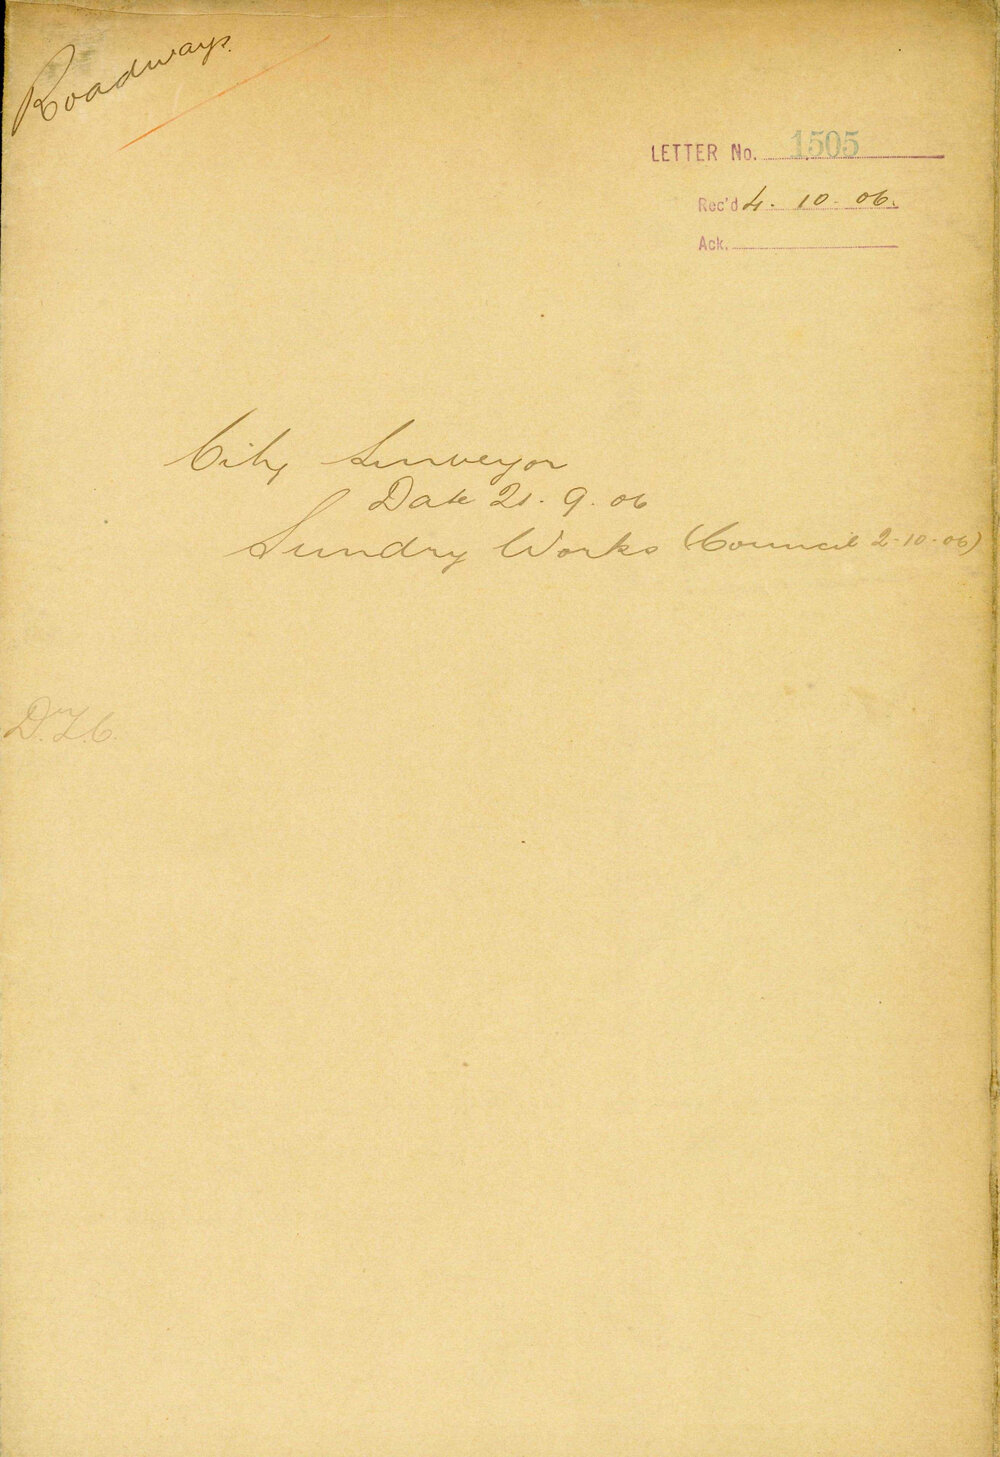 Roadways.
LETTER No. 1505
Rec'd 4. 10. 06.
Ack.
City Surveyor
Date 21. 9. 06
Sundry Works (Council 2-10-06)